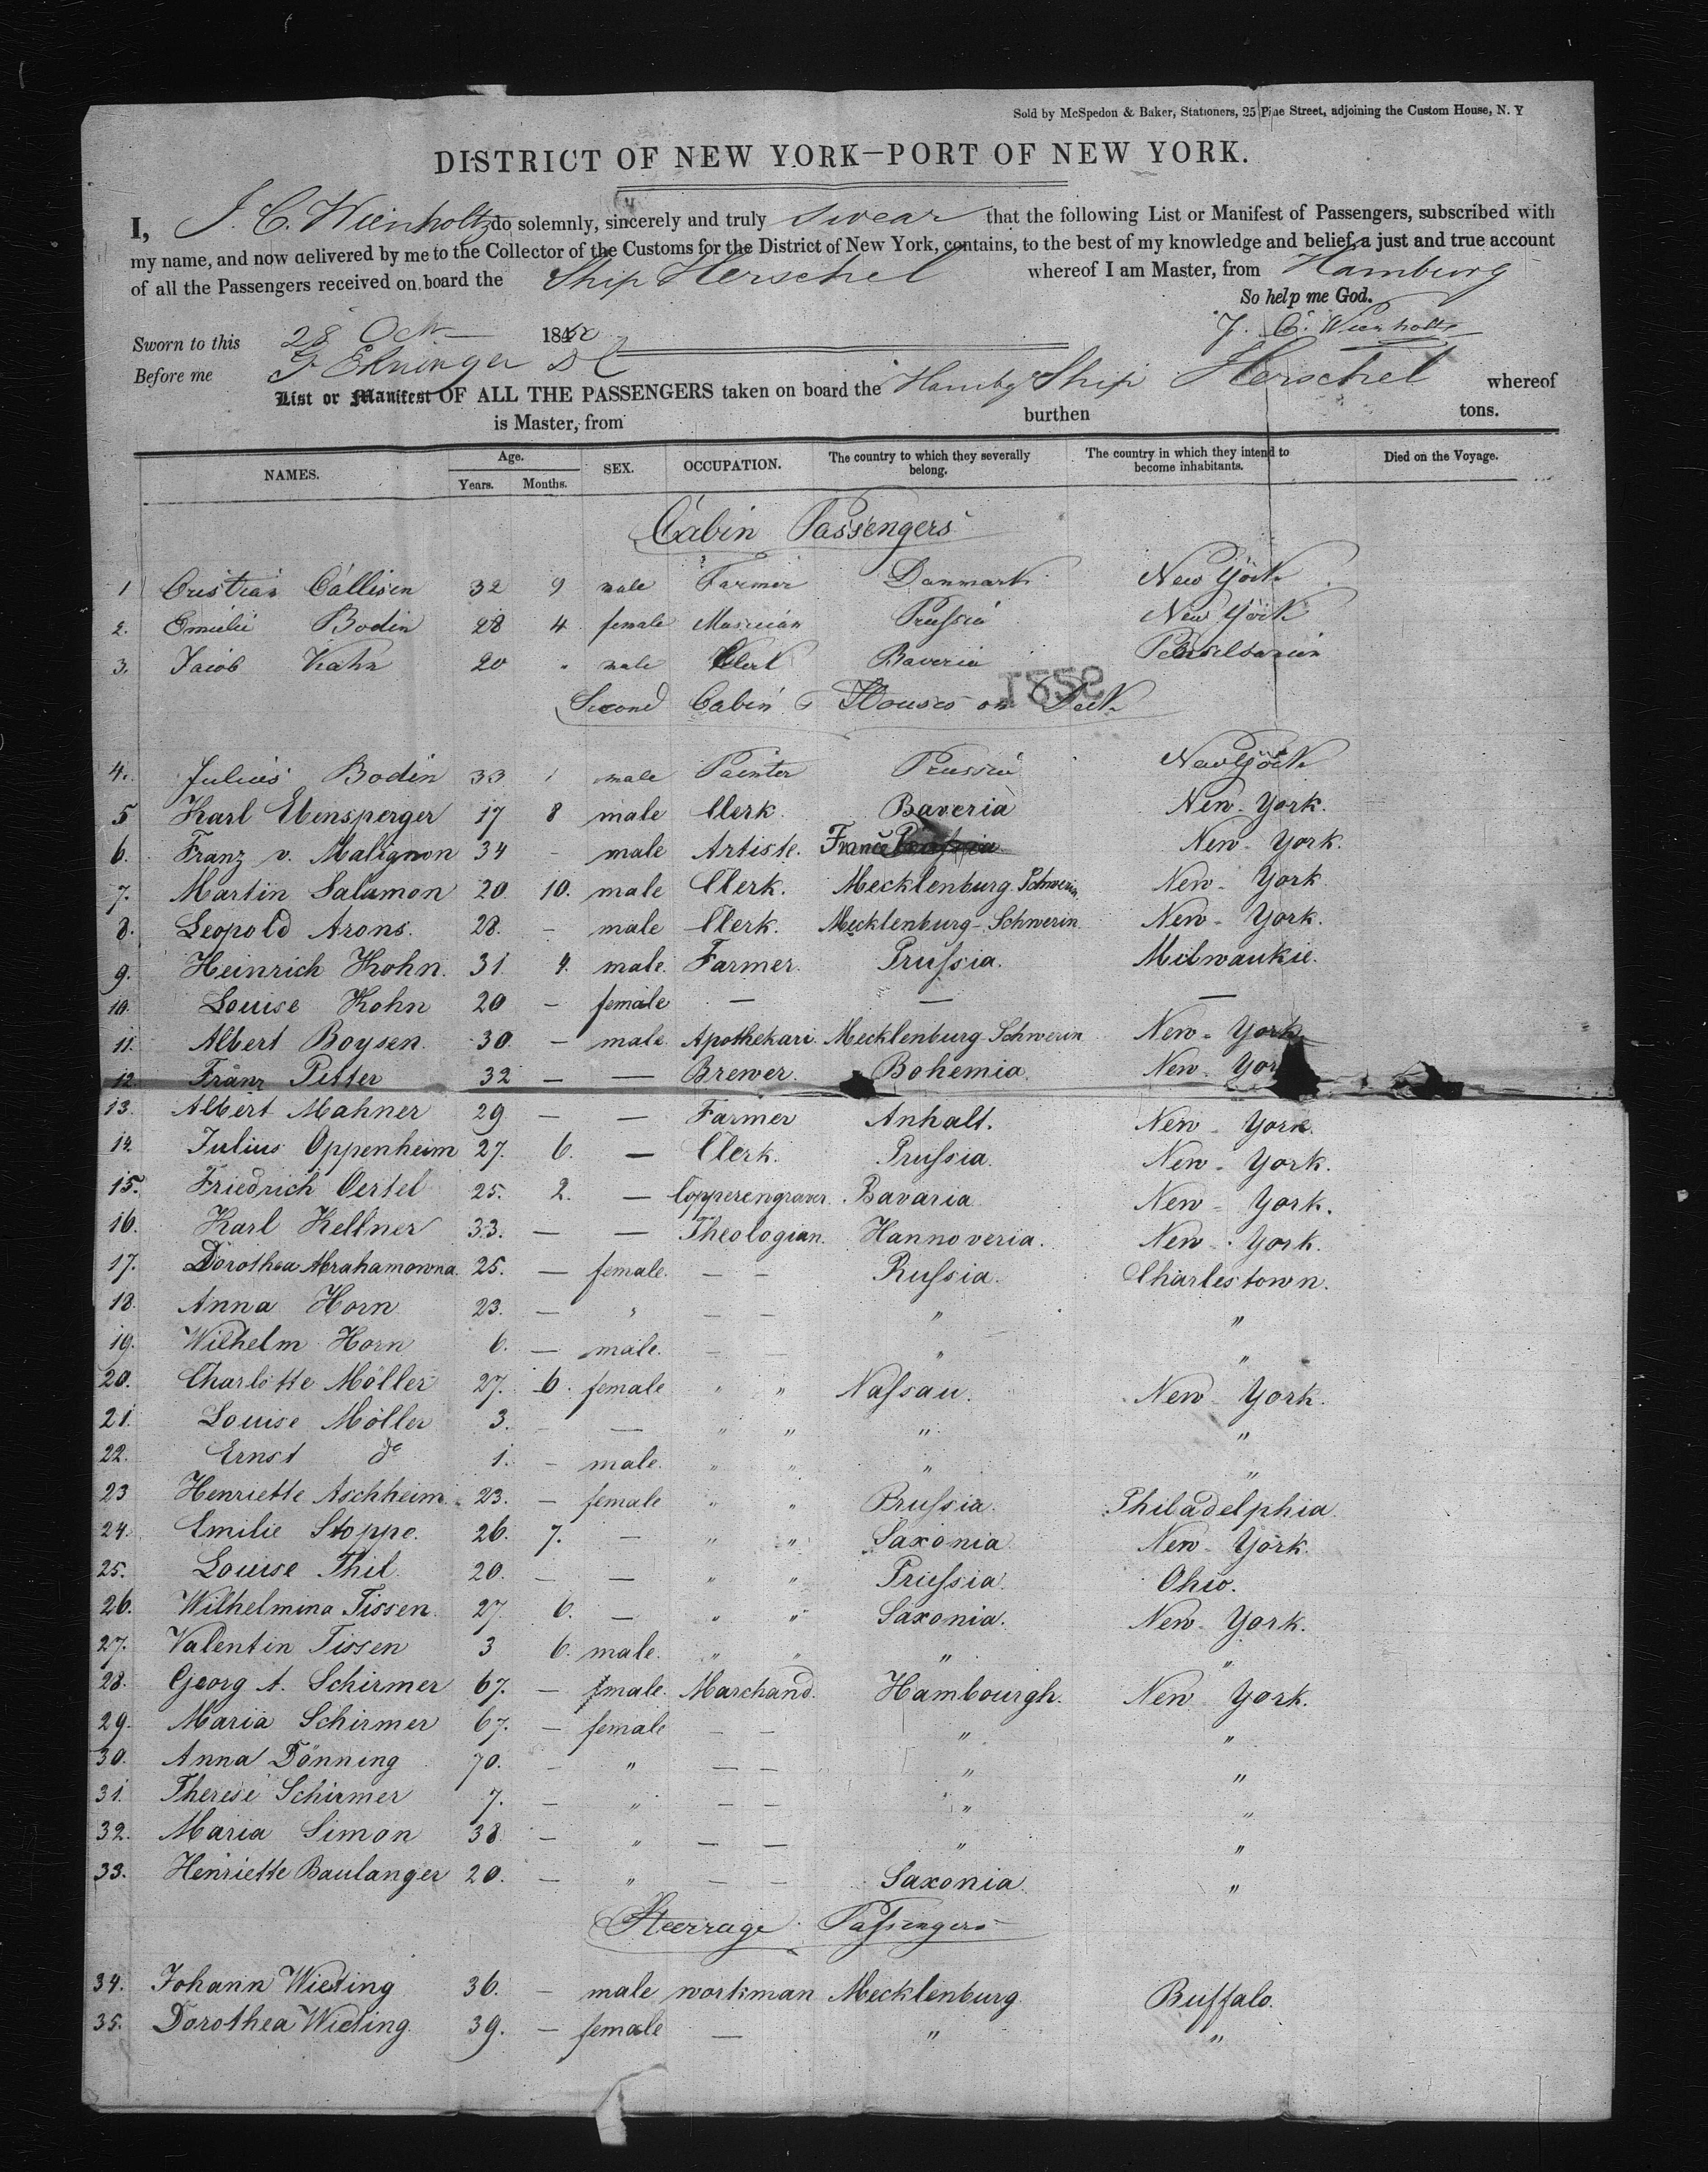 Sold by McSpedon & Baker, Stationers, 25 Pine Street, adjoining the Custom House, N. Y
DISTRICT OF NEW YORK—PORT OF NEW YORK.
I, J. C. Wienholtz do solemnly, sincerely and truly swear that the following List or Manifest of Passengers, subscribed with
my name, and now delivered by me to the Collector of the Customs for the District of New York, contains, to the best of my knowledge and belief, a just and true account
of all the Passengers received on board the Ship Herschel whereof I am Master, from Hamburg
So help me God.
J. C. Wienholtz
Sworn to this 28 Oct 185
Before me
List or Manifest OF ALL THE PASSENGERS taken on board the Hambg Ship Herschel whereof
is Master, from burthen tons.
NAMES. Age. Years. Months. SEX. OCCUPATION. The country to which they severally belong. The country in which they intend to become inhabitants. Died on the Voyage.
Cabin Passengers
1 Cristian Callisen 32 9 male Farmer Danmark New York
2. Emilie Bodin 28 4 female Musician Prussia New York
3. Jacob Kahn 20 " male Clerk Baveria
1852
Second Cabin & Houses on Deck
4. Julius Bodin 33 1 male Painter Prussia New York
5 Karl Ebensperger 17 8 male Clerk. Baveria New-York.
6. Franz v. Malignon 34 - male Artiste. France New-York.
7. Martin Salamon 20 10. male Clerk. Mecklenburg Schwerin. New-York
8. Leopold Arons. 28. - male Clerk. Mecklenburg-Schwerin. New-York.
9. Heinrich Kohn. 31. 4. male. Farmer. Prussia. Milwaukie.
10. Louise Kohn 20 - female — — —
11. Albert Boysen. 30. - male Apothekari. Mecklenburg-Schwerin New-York
12. Franz Petter 32 — — Brewer. Bohemia. New-York
13. Albert Mahner 29 — — Farmer Anhalt. New-York.
14. Julius Oppenheim 27. 6. — Clerk. Prussia. New-York.
15. Friedrich Oertel 25. 2. — Copperengraver. Bavaria New-York.
16. Karl Kellner 33. — — Theologian. Hannoveria. New-York.
17. Dorothea Abrahamowna 25. — female. — — Russia. Charlestown.
18. Anna Horn 23. — " — — " "
19. Wilhelm Horn 6. — male. — — " "
20. Charlotte Möller 27. 6. female " " Nassau. New-York.
21. Louise Möller 3. - — " " " "
22. Ernst do 1. - male. " " " "
23 Henriette Aschheim. 23. - female " " Prussia. Philadelphia.
24. Emilie Stoppe. 26. 7. — " " Saxonia New-York.
25. Louise Thil 20. — — " " Prussia. Ohio.
26. Wilhelmina Tissen. 27. 6. — " " Saxonia. New-York.
27. Valentin Tissen 3 6. male. " " " "
28. Georg A. Schirmer 67. - male. Marchand. Hambourgh. New-York.
29. Maria Schirmer 67. - female — — " "
30. Anna Dönning 70. - " — — " "
31. Therese Schirmer 7. — " — — " "
32. Maria Simon 38. — " — — " "
33. Henriette Baulanger 20. — " — — Saxonia. "
Steerrage Passengers
34. Johann Wieting 36. - male workman Mecklenburg. Buffalo.
35. Dorothea Wieting. 39. - female — " "